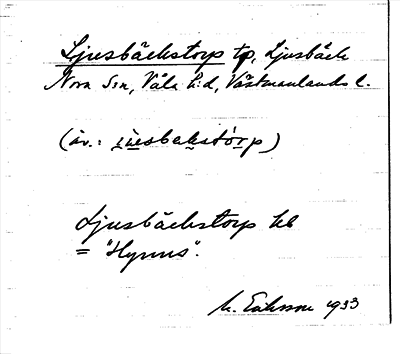 Ljusbäckstorp tp, Ljusbäck
Nora Sn, Våla h:d, Västmanlands l.
(äv.: jùsbäkstórp)
Ljusbäckstorp kb
= "Hyvens".
M. Eriksson 1933